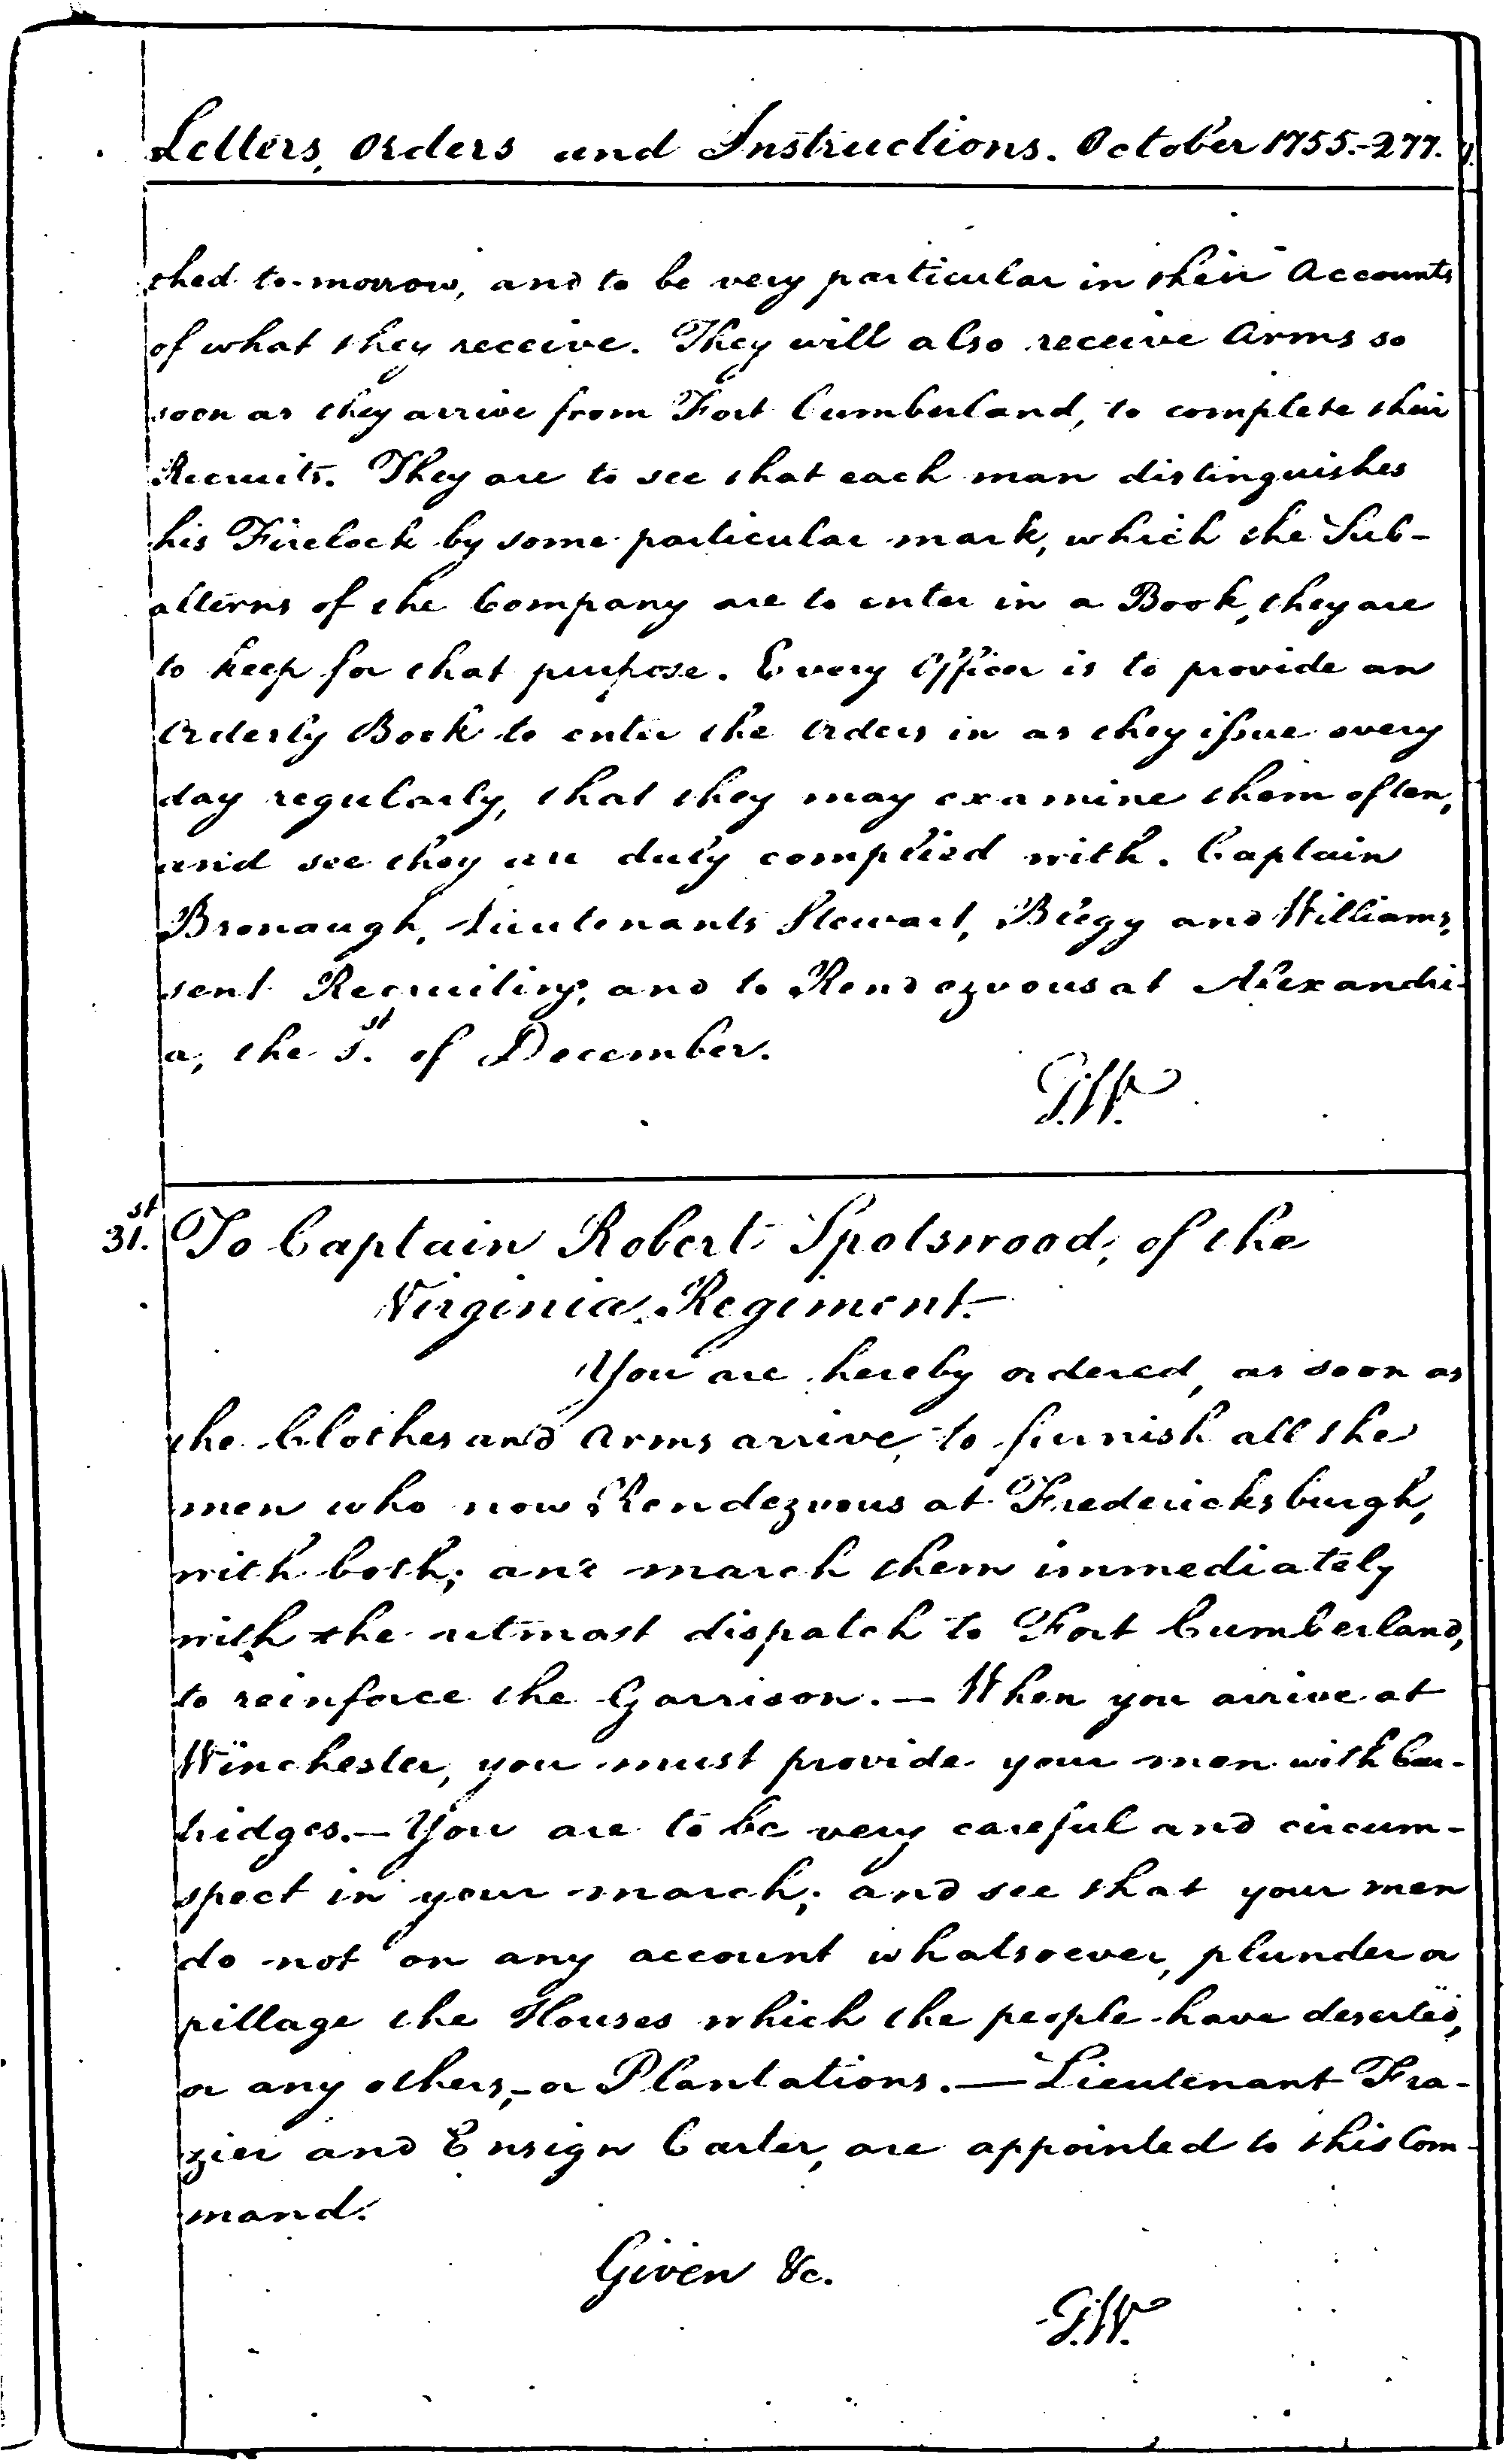 Letters, Orders and Instructions. October 1755.-277.
ched to-morrow, and to be very particular in their Accounts
of what they receive. They will also receive Arms so
soon as they arrive from Fort Cumberland, to complete their
Recruits. They are to see that each man distinguishes
his Firelock by some particular mark, which the Sub-
alterns of the Company are to enter in a Book, they are
to keep for that purpose. Every Officer is to provide an
Orderly Book to enter the Orders in as they issue every
day regularly, that they may examine them often,
and see they are duly complied with. Captain
Bronaugh, Lieutenants Stewart, Blegg and Williams,
sent Recruiting; and to Rendezvous at Alexandri-
a, the 1.st of December.
G:W.
31.st To Captain Robert Spotswood, of the
Virginia Regiment.
You are hereby ordered, as soon as
the Clothes and Arms arrive, to furnish all the
men who now Rendezvous at Fredericksburgh,
with both; and march them immediately
with the utmost dispatch to Fort Cumberland,
to reinforce the Garrison. — When you arrive at
Winchester, you must provide your men with Car-
tridges. — You are to be very careful and circum-
spect in your march; and see that your men
do not on any account whatsoever, plunder or
pillage the Houses which the people have deserted,
or any others, - or Plantations. — Lieutenant Fra-
zier and Ensign Carter, are appointed to this Com-
mand.
Given &c.
G:W.